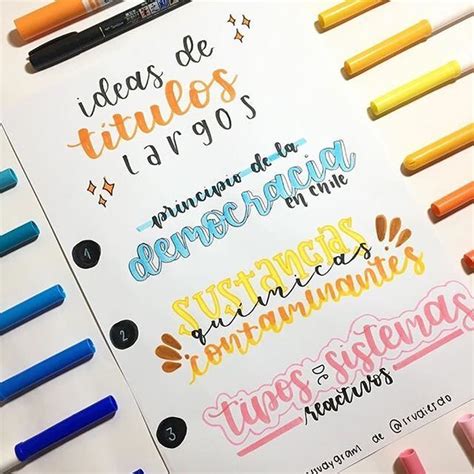 ideas de
títulos
largos
1
principio de la
democracia
en chile
2
sustancias
químicas
contaminantes
3
tipos de sistemas
reactivos